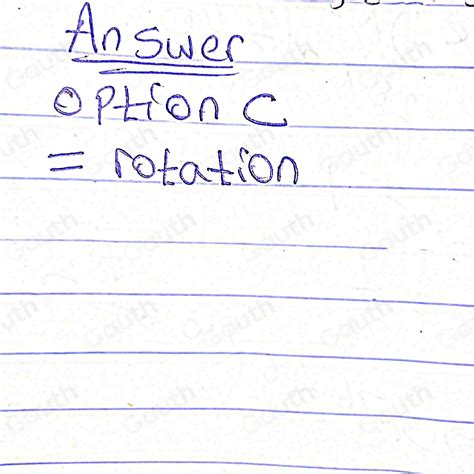 Answer
Option C
= rotation